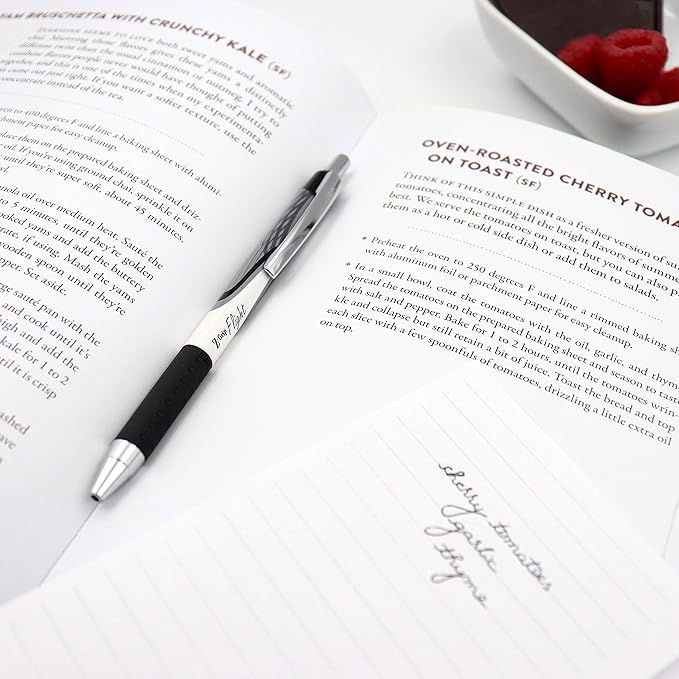 YAM BRUSCHETTA WITH CRUNCHY KALE (SF)
EVERYONE SEEMS TO LOVE both sweet yams and aromatic
chai. Marrying those flavors gives these yams a distinctly
different twist than the usual cinnamon or nutmeg. I try to
combine flavors people never would have thought of putting
together, and this is one of the times when my experimenta-
came out just right. If you want a softer texture, use the
concentrate instead of the tea.
oven to 400 degrees F and line a baking sheet with alumi-
chment paper for easy cleanup.
place them on the prepared baking sheet and driz-
oil. If you're using ground chai, sprinkle it on
until they're super soft, about 45 minutes.
nola oil over medium heat. Sauté the
to 5 minutes, until they're golden
ooked yams and add the buttery
rate, if using. Mash the yams
wooden spoon until they're
epper. Set aside.
rge sauté pan with the
and cook until it's
high and add the
kale for 1 to 2
ntil it is crisp
ashed
ave
Zebra Flight
OVEN-ROASTED CHERRY TOMA
ON TOAST (SF)
THINK OF THIS SIMPLE DISH as a fresher version of su
tomatoes, concentrating all the bright flavors of summe
best. We serve the tomatoes on toast, but you can also p
them as a hot or cold side dish or add them to salads.
Preheat the oven to 250 degrees F and line a rimmed baking sh
with aluminum foil or parchment paper for easy cleanup.
In a small bowl, coat the tomatoes with the oil, garlic, and thym
Spread the tomatoes on the prepared baking sheet and season to taste
with salt and pepper. Bake for 1 to 2 hours, until the tomatoes wrin-
kle and collapse but still retain a bit of juice. Toast the bread and top
each slice with a few spoonfuls of tomatoes, drizzling a little extra oil
on top.
cherry tomatoes
garlic
thyme